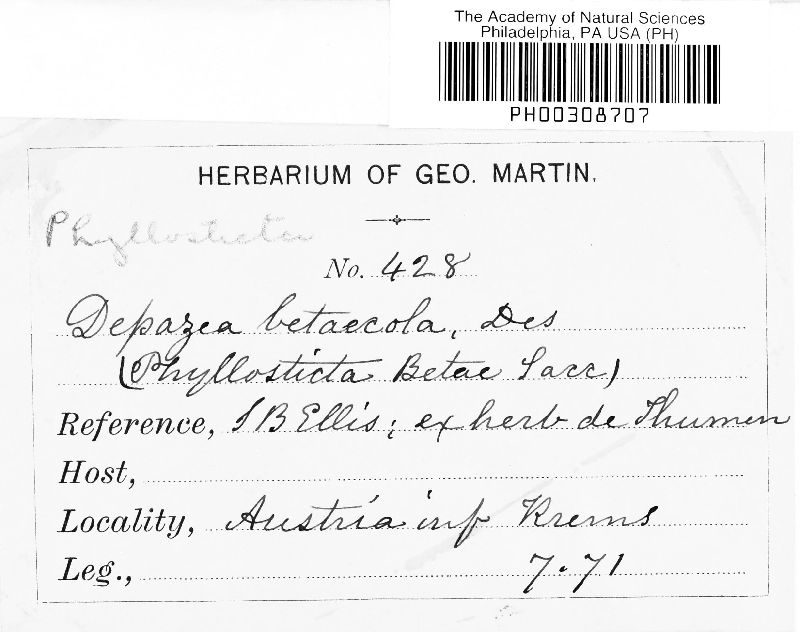 The Academy of Natural Sciences
Philadelphia, PA USA (PH)
PH00308707
HERBARIUM OF GEO. MARTIN.
Phyllosticta
No. 428
Depazea betaecola, Des
(Phyllosticta Betae Sacc)
Reference, J B Ellis; ex herb de Thumen
Host,
Locality, Austria inf Krems
Leg., 7.71